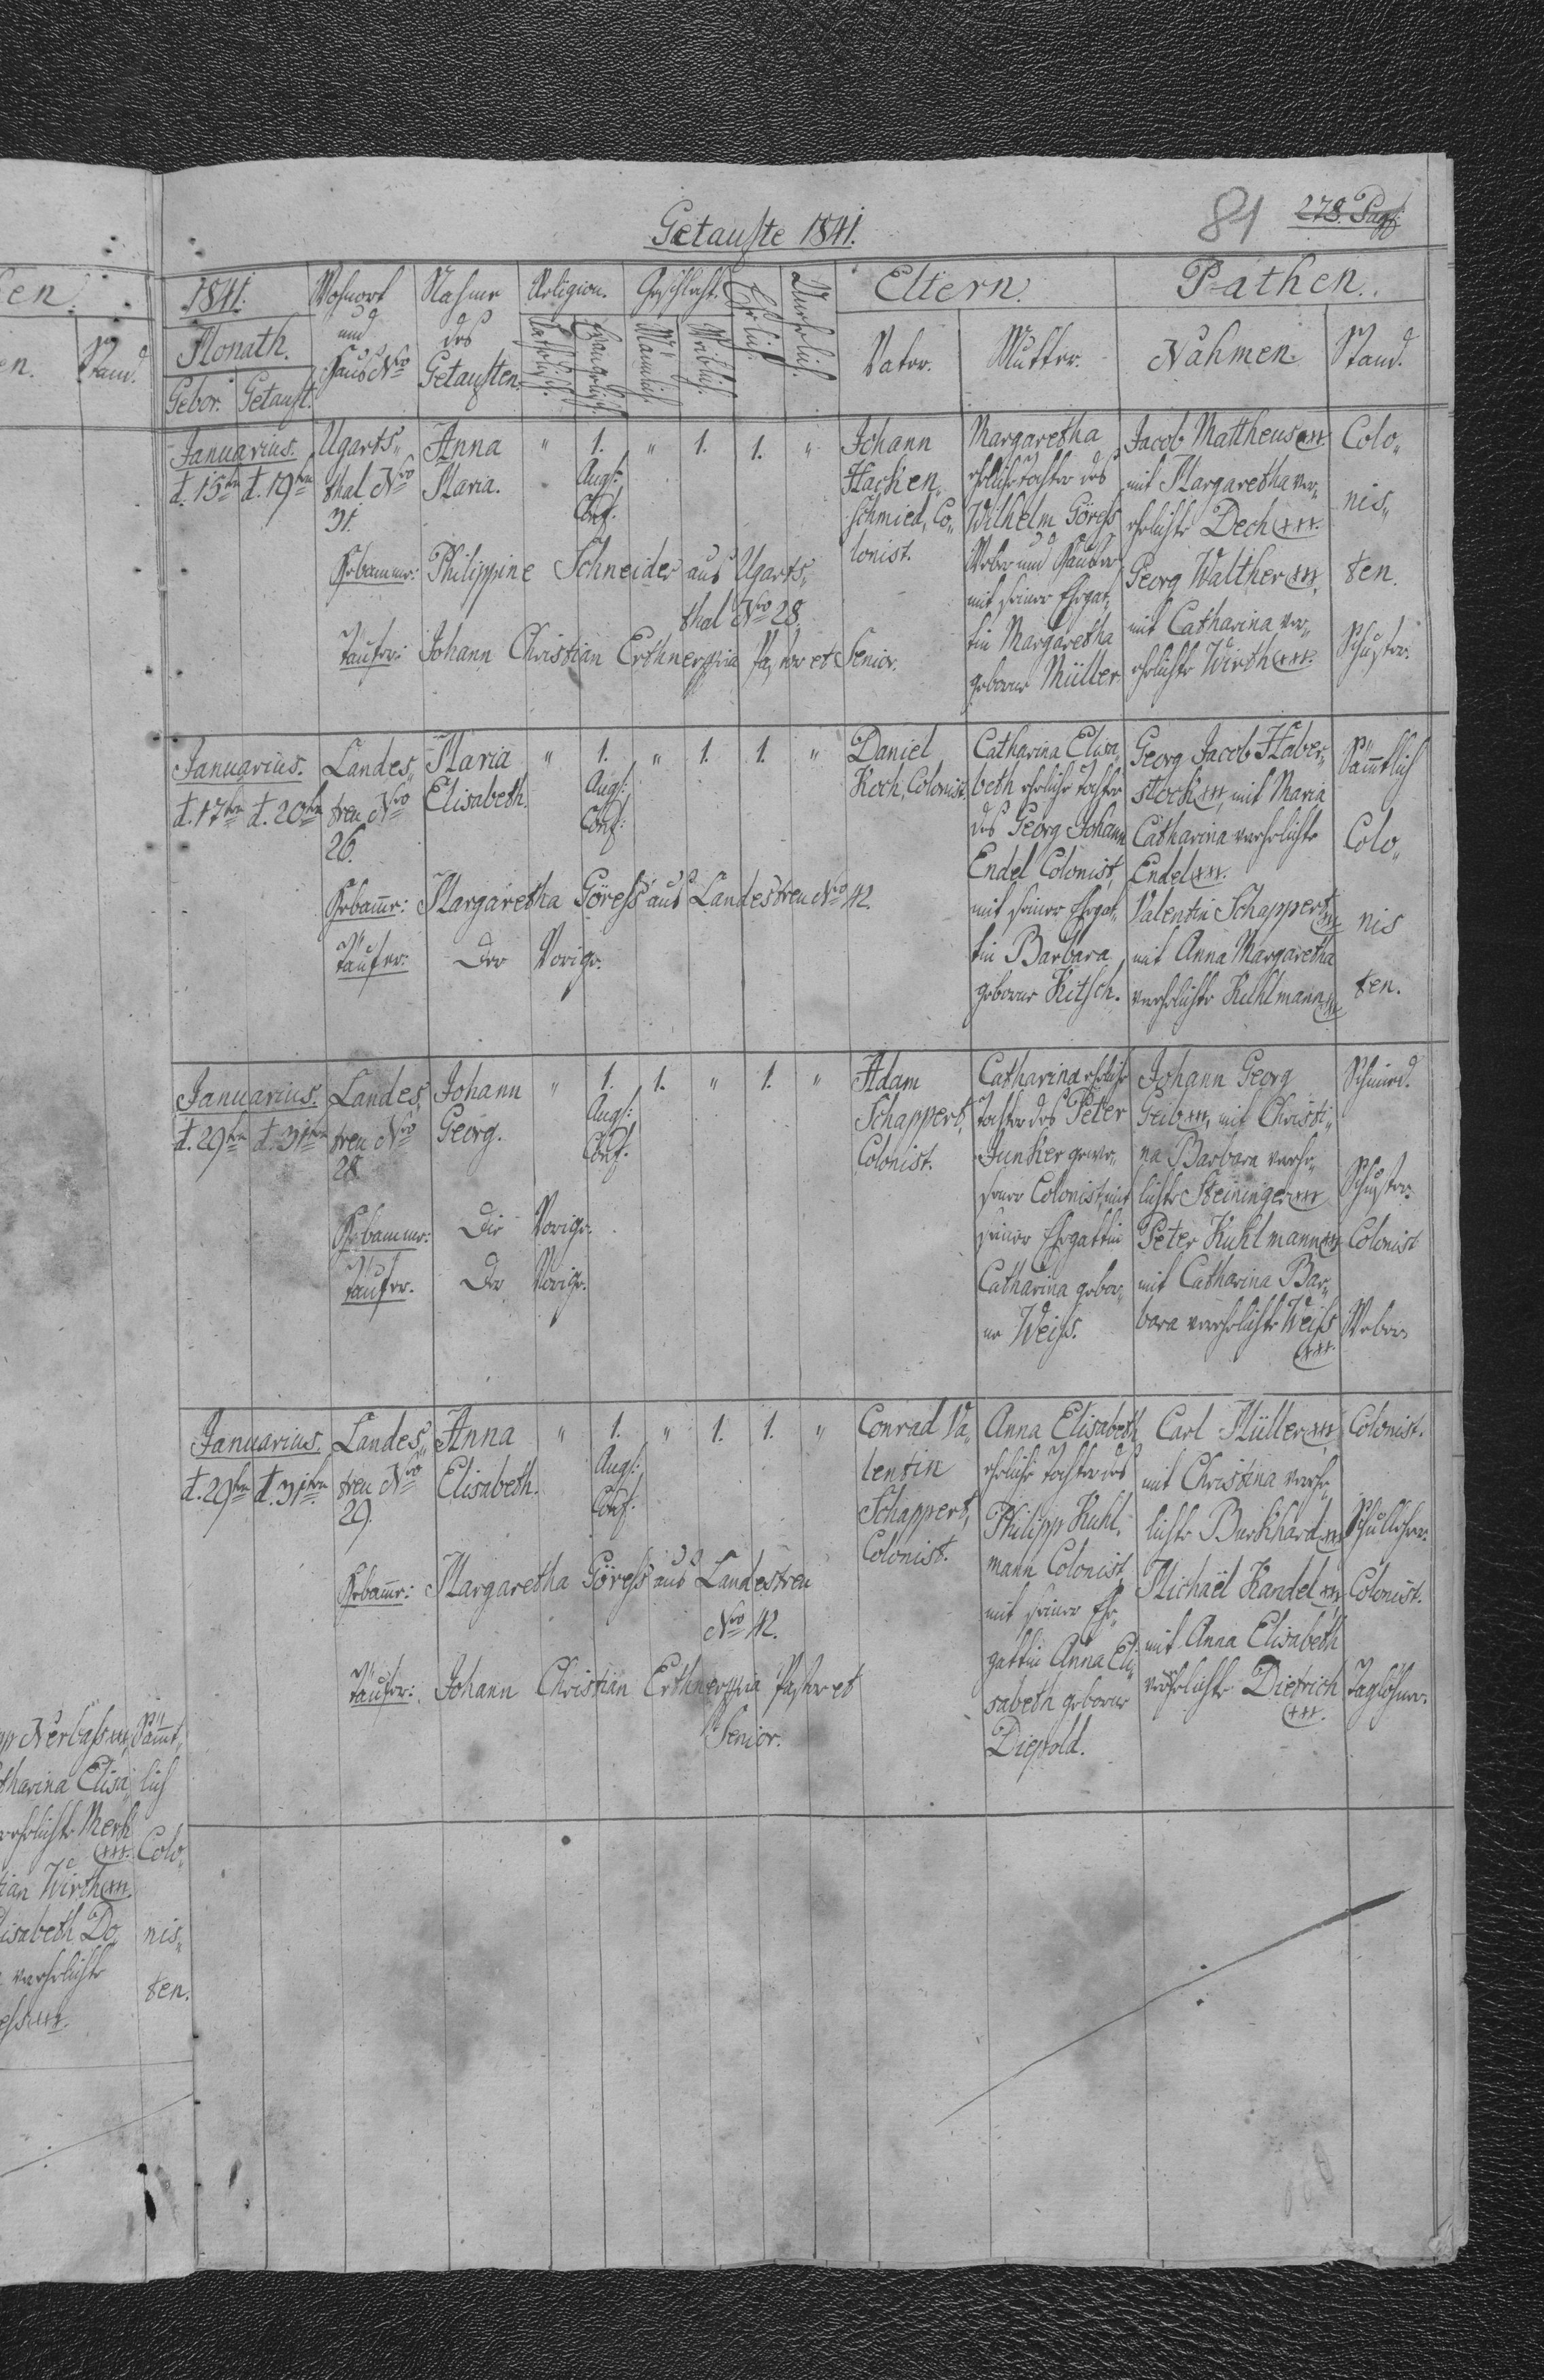 Getaufte 1841.
81
278. Pag:
1841.
Monath.
Gebor. Getauft.
Wohnort
und
Haus Nro
Nahme
des
Getauften.
Religion.
Catholisch.
Evangelisch.
Geschlecht.
Männlich.
Weiblich.
Ehelich.
Unehelich.
Eltern.
Vater. Mutter.
Pathen.
Nahmen. Stand.
Januarius.
d. 15ten d. 19ten
Ugarts„
thal Nro
31.
Anna
Maria.
„ 1. „ 1. 1. „
Augs:
Conf.
Johann
Hacken„
schmied, Co„
lonist.
Margaretha
eheliche Tochter des
Wilhelm Göress
Weber und Häusler
mit seiner Ehegat„
tin Margaretha
geborne Müller.
Jacob Mattheus xxx
mit Margaretha ver„
ehelichte Dech xxx.
Georg Walther xxx,
mit Catharina ver„
ehelichte Wirth xxx.
Colo„
nis„
ten.
Schuster.
Hebamme: Philippine Schneider aus Ugarts„
thal Nro 28.
Täufer: Johann Christian Erthner mpria Pastor et Senior.
Januarius.
d. 17ten d. 20ten
Landes„
treu Nro
26.
Maria
Elisabeth.
„ 1. „ 1. 1. „
Augs:
Conf:
Daniel
Koch, Colonist.
Catharina Elisa„
beth eheliche Tochter
des Georg Johann
Endel Colonist,
mit seiner Ehegat„
tin Barbara
geborne Kitsch.
Georg Jacob Haber„
stock xxx, mit Maria
Catharina verehelichte
Endel xxx.
Valentin Schappert xxx
mit Anna Margaretha
verehelichte Kuhlmann xxx
Sämmtlich
Colo„
nis
ten.
Hebamme: Margaretha Göress aus Landestreu Nro 42.
Täufer: Der Vorige.
Januarius.
d. 29ten d. 31ten
Landes„
treu Nro
28.
Johann
Georg.
„ 1. 1. „ 1. „
Augs:
Conf.
Adam
Schappert,
Colonist.
Catharina eheliche
Tochter des Peter
Junker gewe„
sener Colonist, mit
seiner Ehegattin
Catharina gebor„
ne Weiss.
Johann Georg
Geib xxx, mit Christi„
na Barbara verehe„
lichte Steininger xxx
Peter Kuhlmann xxx
mit Catharina Bar„
bara verehelichte Weiss
xxx.
Schmied.
Schuster.
Colonist
Weber.
Hebamme: Die Vorige.
Täufer. Der Vorige.
Januarius.
d. 29ten d. 31ten
Landes„
treu Nro
29.
Anna
Elisabeth.
„ 1. „ 1. 1. „
Augs:
Conf.
Conrad Va„
lentin
Schappert,
Colonist.
Anna Elisabeth
eheliche Tochter des
Philipp Kuhl„
mann Colonist,
mit seiner Ehe„
gattin Anna Eli„
sabeth geborne
Diepold.
Carl Müller xxx
mit Christina verehe„
lichte Burkhard xxx
Michaël Kandel xxx,
mit Anna Elisabeth
verehelichte Dietrich
xxx.
Colonist.
Schullehrer.
Colonist.
Taglöhner.
Hebamme: Margaretha Göress aus Landestreu
Nro 42.
Täufer: Johann Christian Erthner mpria Pastor et
Senior.
en.
en. Stand.
Sämmt„
tharina Elisa„ lich
Merk
xxx. Colo„
tian Wirth xxx.
lisabeth Do„ nis„
verehelichte
ten.